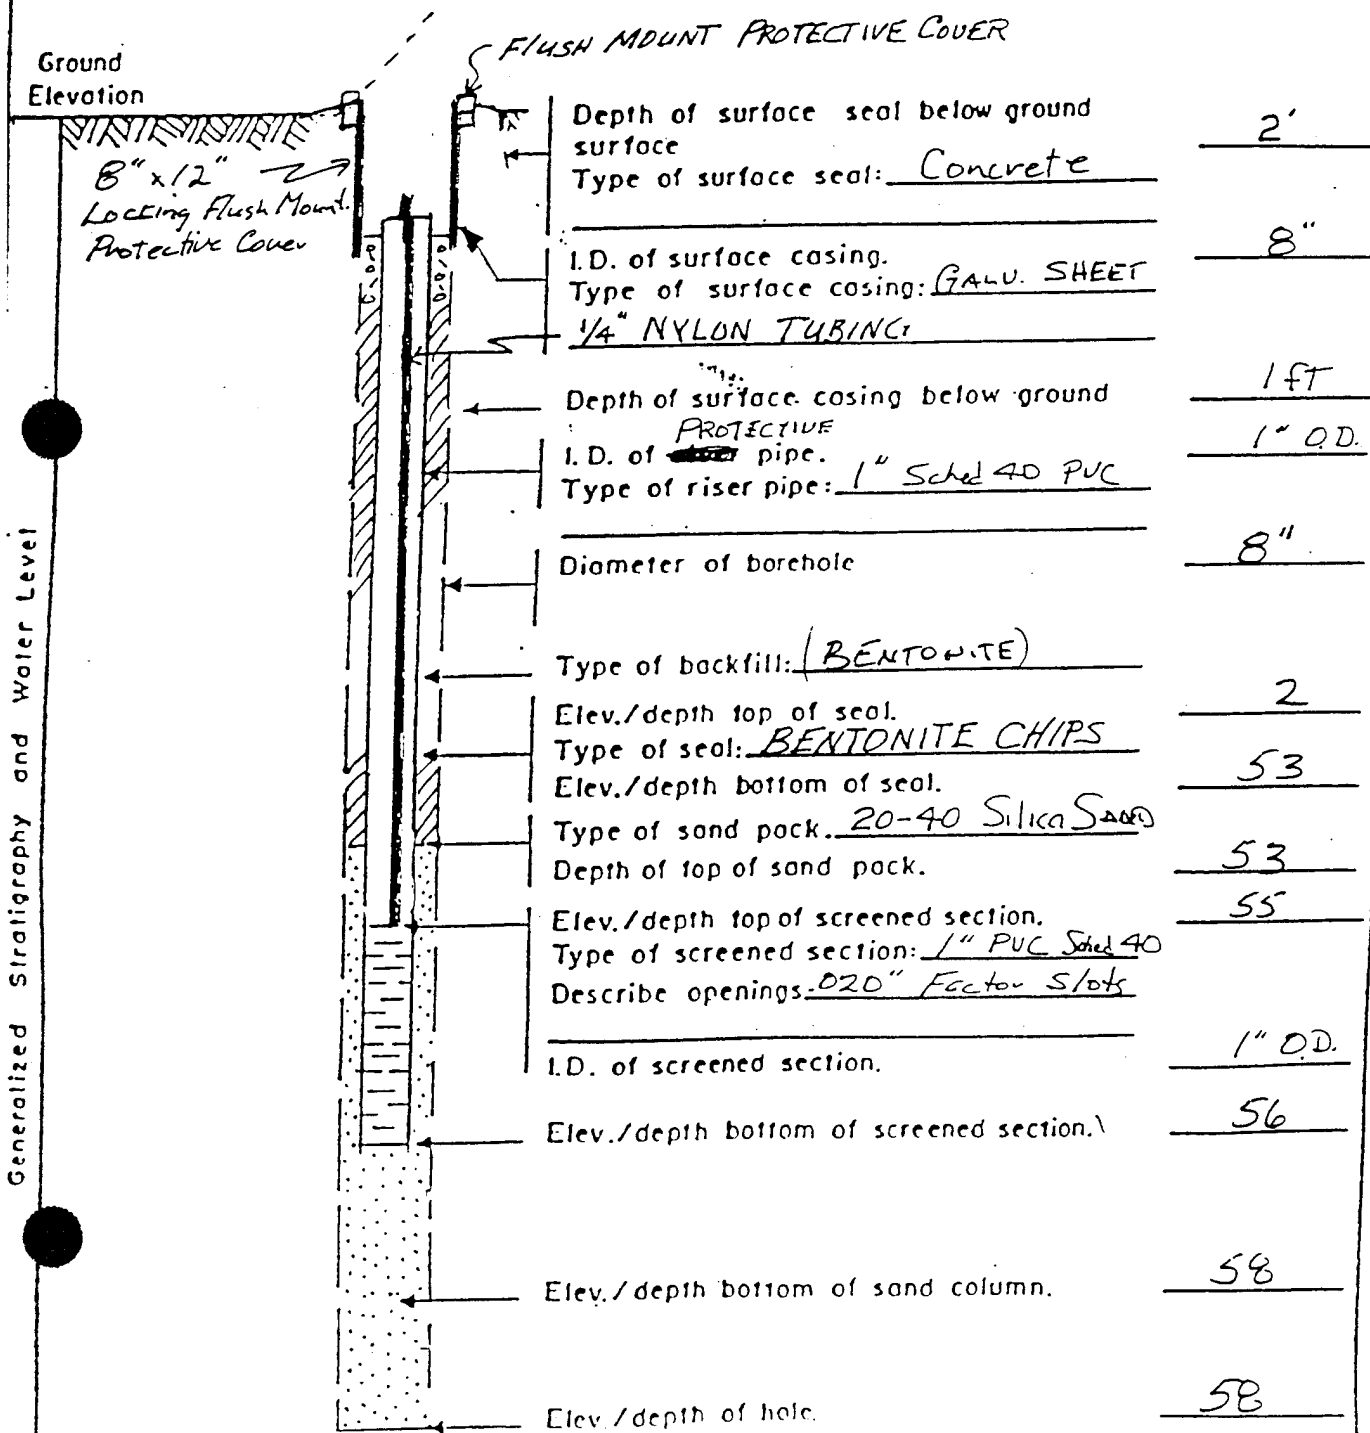 FLUSH MOUNT PROTECTIVE COVER
Ground
Elevation
8" x 12"
Locking Flush Mount
Protective Cover
Generalized Stratigraphy and Water Level
Depth of surface seal below ground
surface 2'
Type of surface seal: Concrete
I.D. of surface casing. 8"
Type of surface casing: GALV. SHEET
1/4" NYLON TUBING
Depth of surface casing below ground 1 FT
PROTECTIVE
I.D. of pipe. 1" O.D.
Type of riser pipe: 1" Sched 40 PVC
Diameter of borehole 8"
Type of backfill: (BENTONITE)
Elev./depth top of seal. 2
Type of seal: BENTONITE CHIPS
Elev./depth bottom of seal. 53
Type of sand pack. 20-40 Silica SAND
Depth of top of sand pack. 53
Elev./depth top of screened section. 55
Type of screened section: 1" PVC Sched 40
Describe openings .020" Factor Slots
I.D. of screened section. 1" O.D.
Elev./depth bottom of screened section. 56
Elev./depth bottom of sand column. 58
Elev./depth of hole. 58